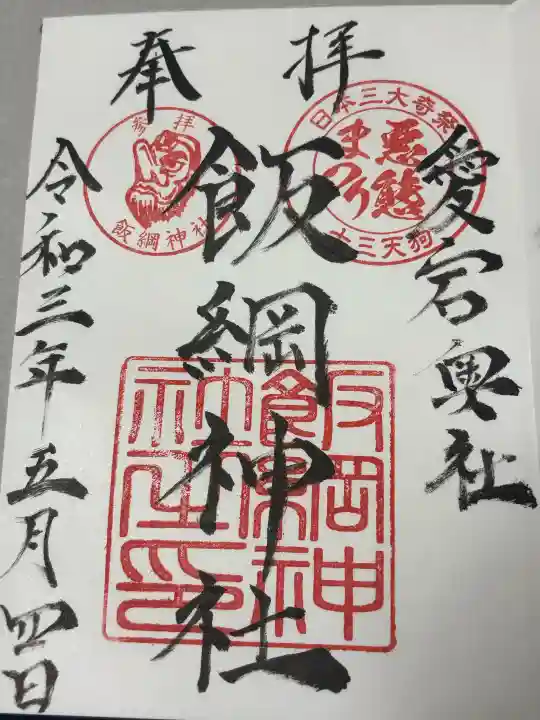 奉拝
愛宕奥社
飯綱神社
令和三年五月四日
参拝
飯綱神社
日本三大奇祭
悪態
まつり
十三天狗
飯綱神
社之印